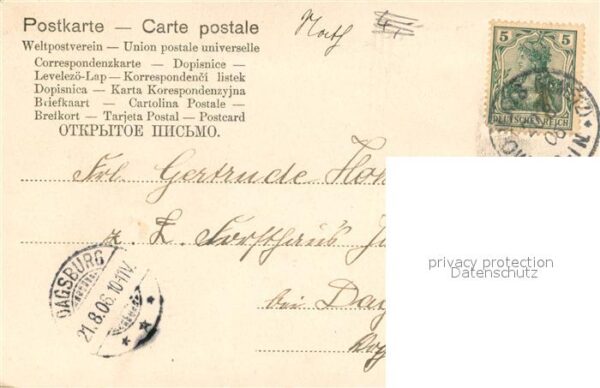 Postkarte — Carte postale
Weltpostverein — Union postale universelle
Correspondenzkarte — Dopisnice —
Levelező-Lap — Korrespondenčí listek
Dopisnica — Karta Korespondenzyjna
Briefkaart — Cartolina Postale —
Brefkort — Tarjeta Postal — Postcard
ОТКРЫТОЕ ПИСЬМО.
5 5
DEUTSCHES REICH
Frl. Gertrude
z. Z. Forsthaus
bei Dag
DAGSBURG
21.8.06.10-11V.
privacy protection
Datenschutz